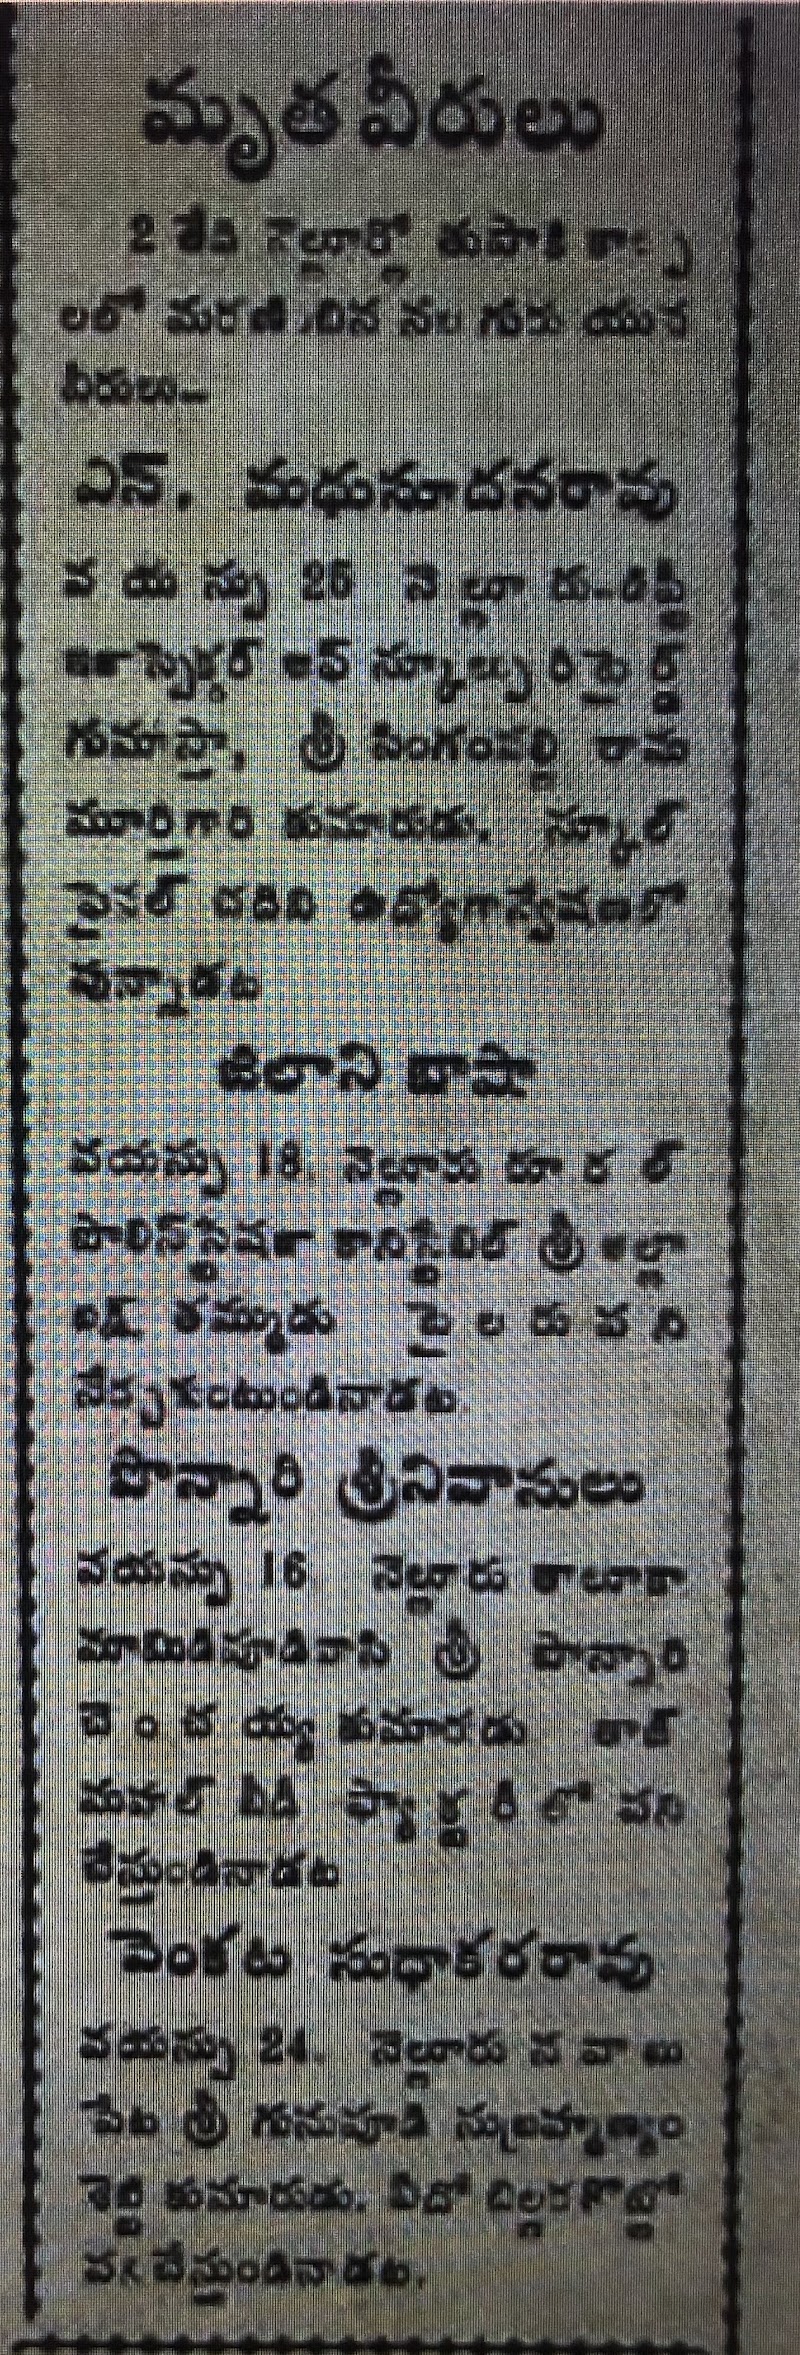 మృతవీరులు
2 తేది నెల్లూర్లో తుపాకి కాల్పు
లలో మరణించిన నలుగురు యువ
వీరులు—
ఎన్. మధుసూదనరావు
వయస్సు 26 నెల్లూరు-డిప్టీ
ఇన్స్పెక్టర్ ఆఫ్ స్కూల్సు రిటైర్డ్
గుమాస్తా, శ్రీ సింగంపల్లి రామ
మూర్తిగారి కుమారుడు. స్కూల్
ఫైనల్ చదివి ఉద్యోగాన్వేషణలో
వున్నాడట
జిలాని బాషా
వయస్సు 18. నెల్లూరు రూరల్
పొలీస్‌స్టేషన్ కానిస్టేబిల్ శ్రీ అల్లా
తమ్ముడు టైలరుపని
నేర్చుకుంటుండినాడట.
పొన్నారి శ్రీనివాసులు
వయస్సు 16 నెల్లూరు తాలూకా
మామిడిపూడివాసి శ్రీ పొన్నారి
చెంచయ్య కుమారుడు తాజ్
మహల్ బీడీ ఫ్యాక్టరీలో పని
చేస్తుండినాడట
వెంకట సుధాకరరావు
వయస్సు 24. నెల్లూరు నవాబు
పేట శ్రీ గునుపూడి సుబ్రహ్మణ్యం
శెట్టి కుమారుడు. ఏదో చిల్లరకొట్లో
పనిచేస్తుండినాడట.